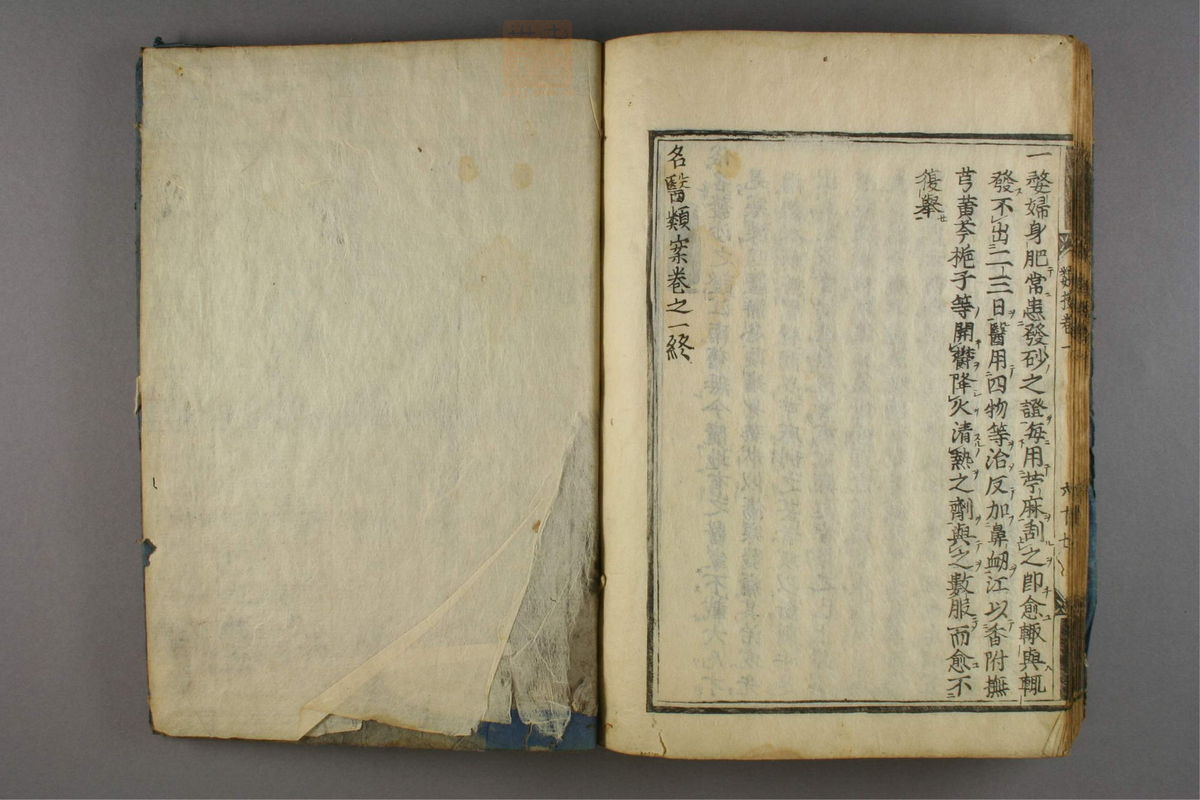 一婺婦身肥常患發砂之證每用苧麻刮之即愈輙與輙
發不出二三日醫用四物等治反加鼻衂江以香附撫
芎黄芩梔子等開欝降火清熱之劑與之數服而愈不
復舉
名醫類案卷之一終
類按卷一
六十七